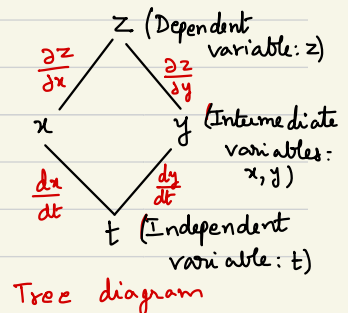 z (Dependent
variable: z)
∂z/∂x
∂z/∂y
x
y (Intermediate
variables:
x, y)
dx/dt
dy/dt
t (Independent
variable: t)
Tree diagram